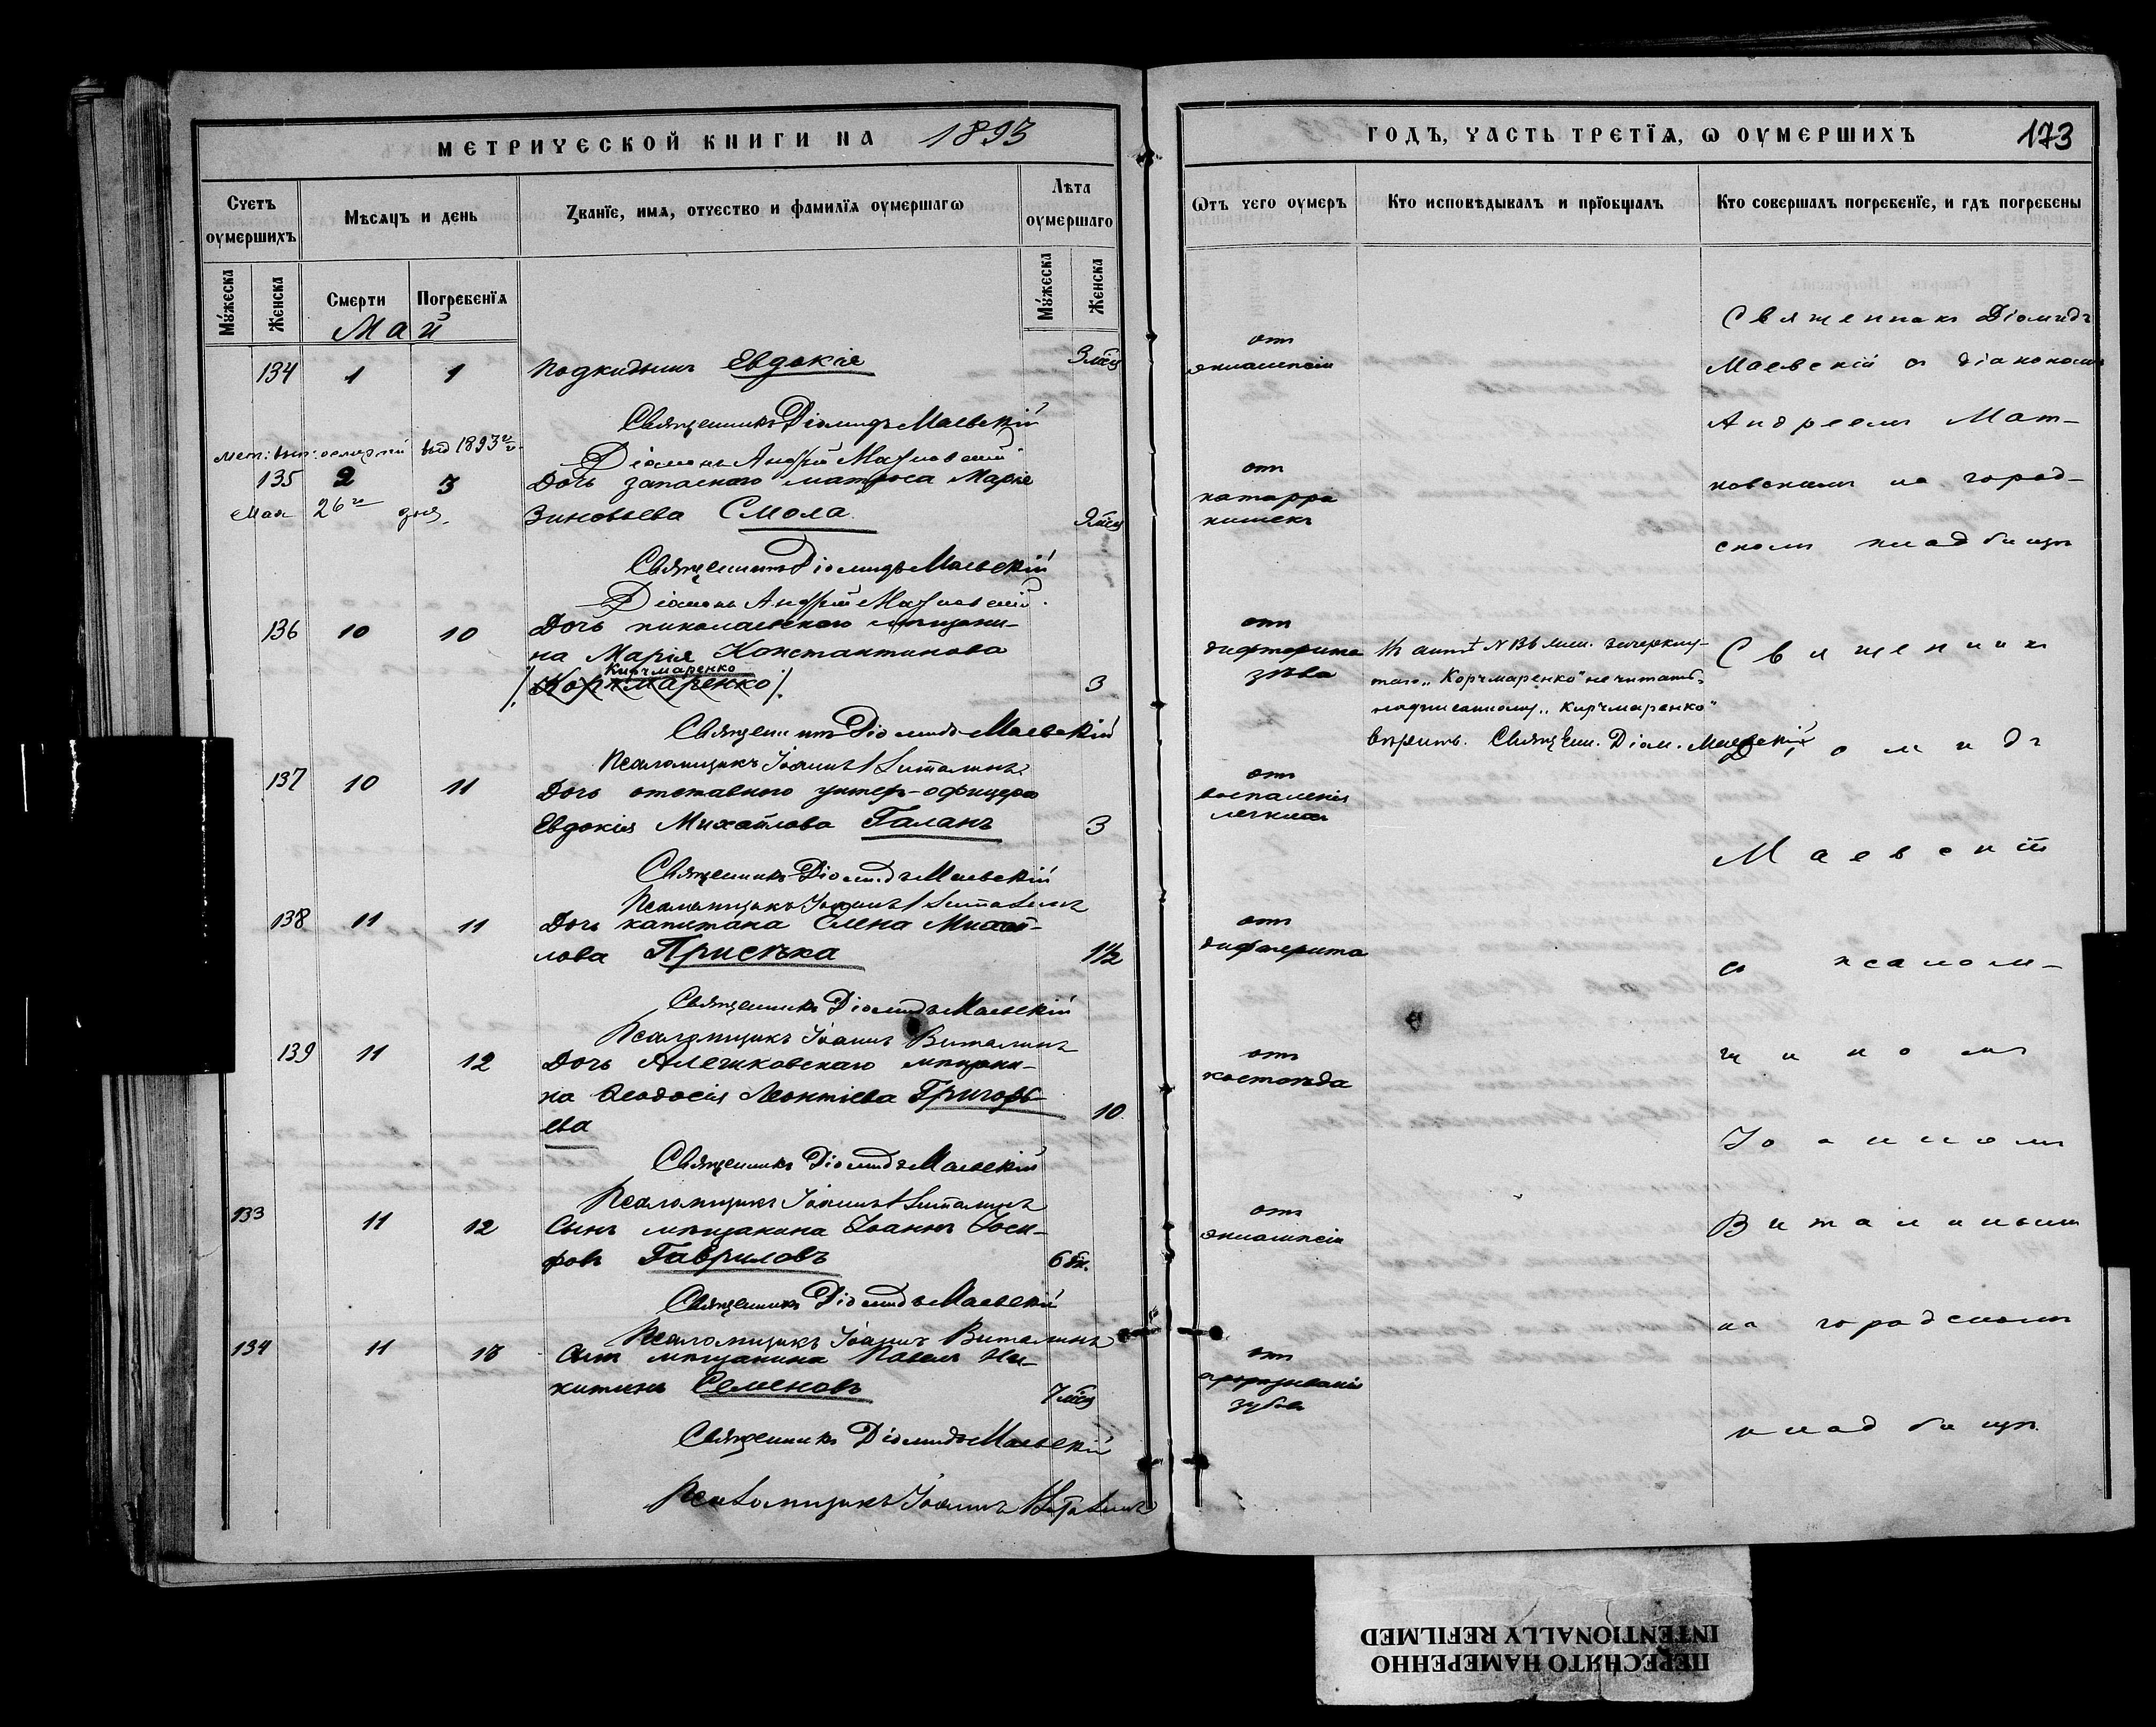 МЕТРИЧЕСКОЙ КНИГИ НА 1893
ГОДЪ, ЧАСТЬ ТРЕТЇѦ, Ѡ ОУМЕРШИХЪ 173
Счетъ оумершихъ
Мѣсяцъ и день
Званїе, имѧ, отчество и фамилїѧ оумершагѡ
Лѣта оумершаго
Ѿтъ чего оумеръ
Кто исповѣдывалъ и прїобщалъ
Кто совершалъ погребенїе, и гдѣ погребены
Мужеска
Женска
Смерти
Погребенїѧ
Мужеска
Женска
Май
134 1 1 Подкидышъ Евдокія 3 мѣс
отъ
эклампсіи
Священникъ Діомидъ
Маевскій съ діакономъ
Андреемъ Мат-
ковскимъ на город-
скомъ кладбищѣ
Священникъ Діомидъ Маевскій
Діаконъ Андрей Матковскій
Мет: вып: выд 1893 г.
135 2 3 Дочь запаснаго матроса Марія
Мая 26го дня.
Зиновьева Смола.
отъ
катарра
кишекъ
Священникъ Діомидъ Маевскій
Діаконъ Андрей Матковскій.
136 10 10 Дочь николаевскаго мѣщани-
на Марія Константинова
Кирчмаренко
/Корчмаренко/. 3
отъ
дифтерита
зѣва
зачеркну-
таго „Корчмаренко" не читать,
надписанному „Кирчмаренко"
вѣрить. Священ. Діом. Маевскій
Священникъ
Діомидъ
Маевскій
съ псалом-
щикомъ
Іоанномъ
Виталинымъ
на городскомъ
кладбищѣ.
Священникъ Діомидъ Маевскій
Псаломщикъ Іоаннъ Виталинъ
137 10 11 Дочь отставного унтер-офицера
Евдокія Михайлова Галанъ 3
отъ
воспаленія
легкихъ
Священникъ Діомидъ Маевскій
Псаломщикъ Іоаннъ Виталинъ
138 11 11 Дочь капитана Елена Михай-
лова Присѣка 1½
отъ
дифтерита
Священникъ Діомидъ Маевскій
Псаломщикъ Іоаннъ Виталинъ
139 11 12 Дочь Алешковскаго мѣщани-
на Ѳеодосія Леонтіева Григорь-
ева 10.
отъ
костоѣда
Священникъ Діомидъ Маевскій
Псаломщикъ Іоаннъ Виталинъ
133 11 12 Сынъ мѣщанина Іоаннъ Іоси-
фовъ Гавриловъ
отъ
эклампсіи
Священникъ Діомидъ Маевскій
Псаломщикъ Іоаннъ Виталинъ
134 11 Сынъ мѣщанина Павелъ Ни-
китинъ Семеновъ 7 мѣс
отъ
прорѣзыванія
зубовъ
Священникъ Діомидъ Маевскій
Псаломщикъ Іоаннъ Виталинъ
ПЕРЕСНЯТО НАМЕРЕННО
INTENTIONALLY REFILMED